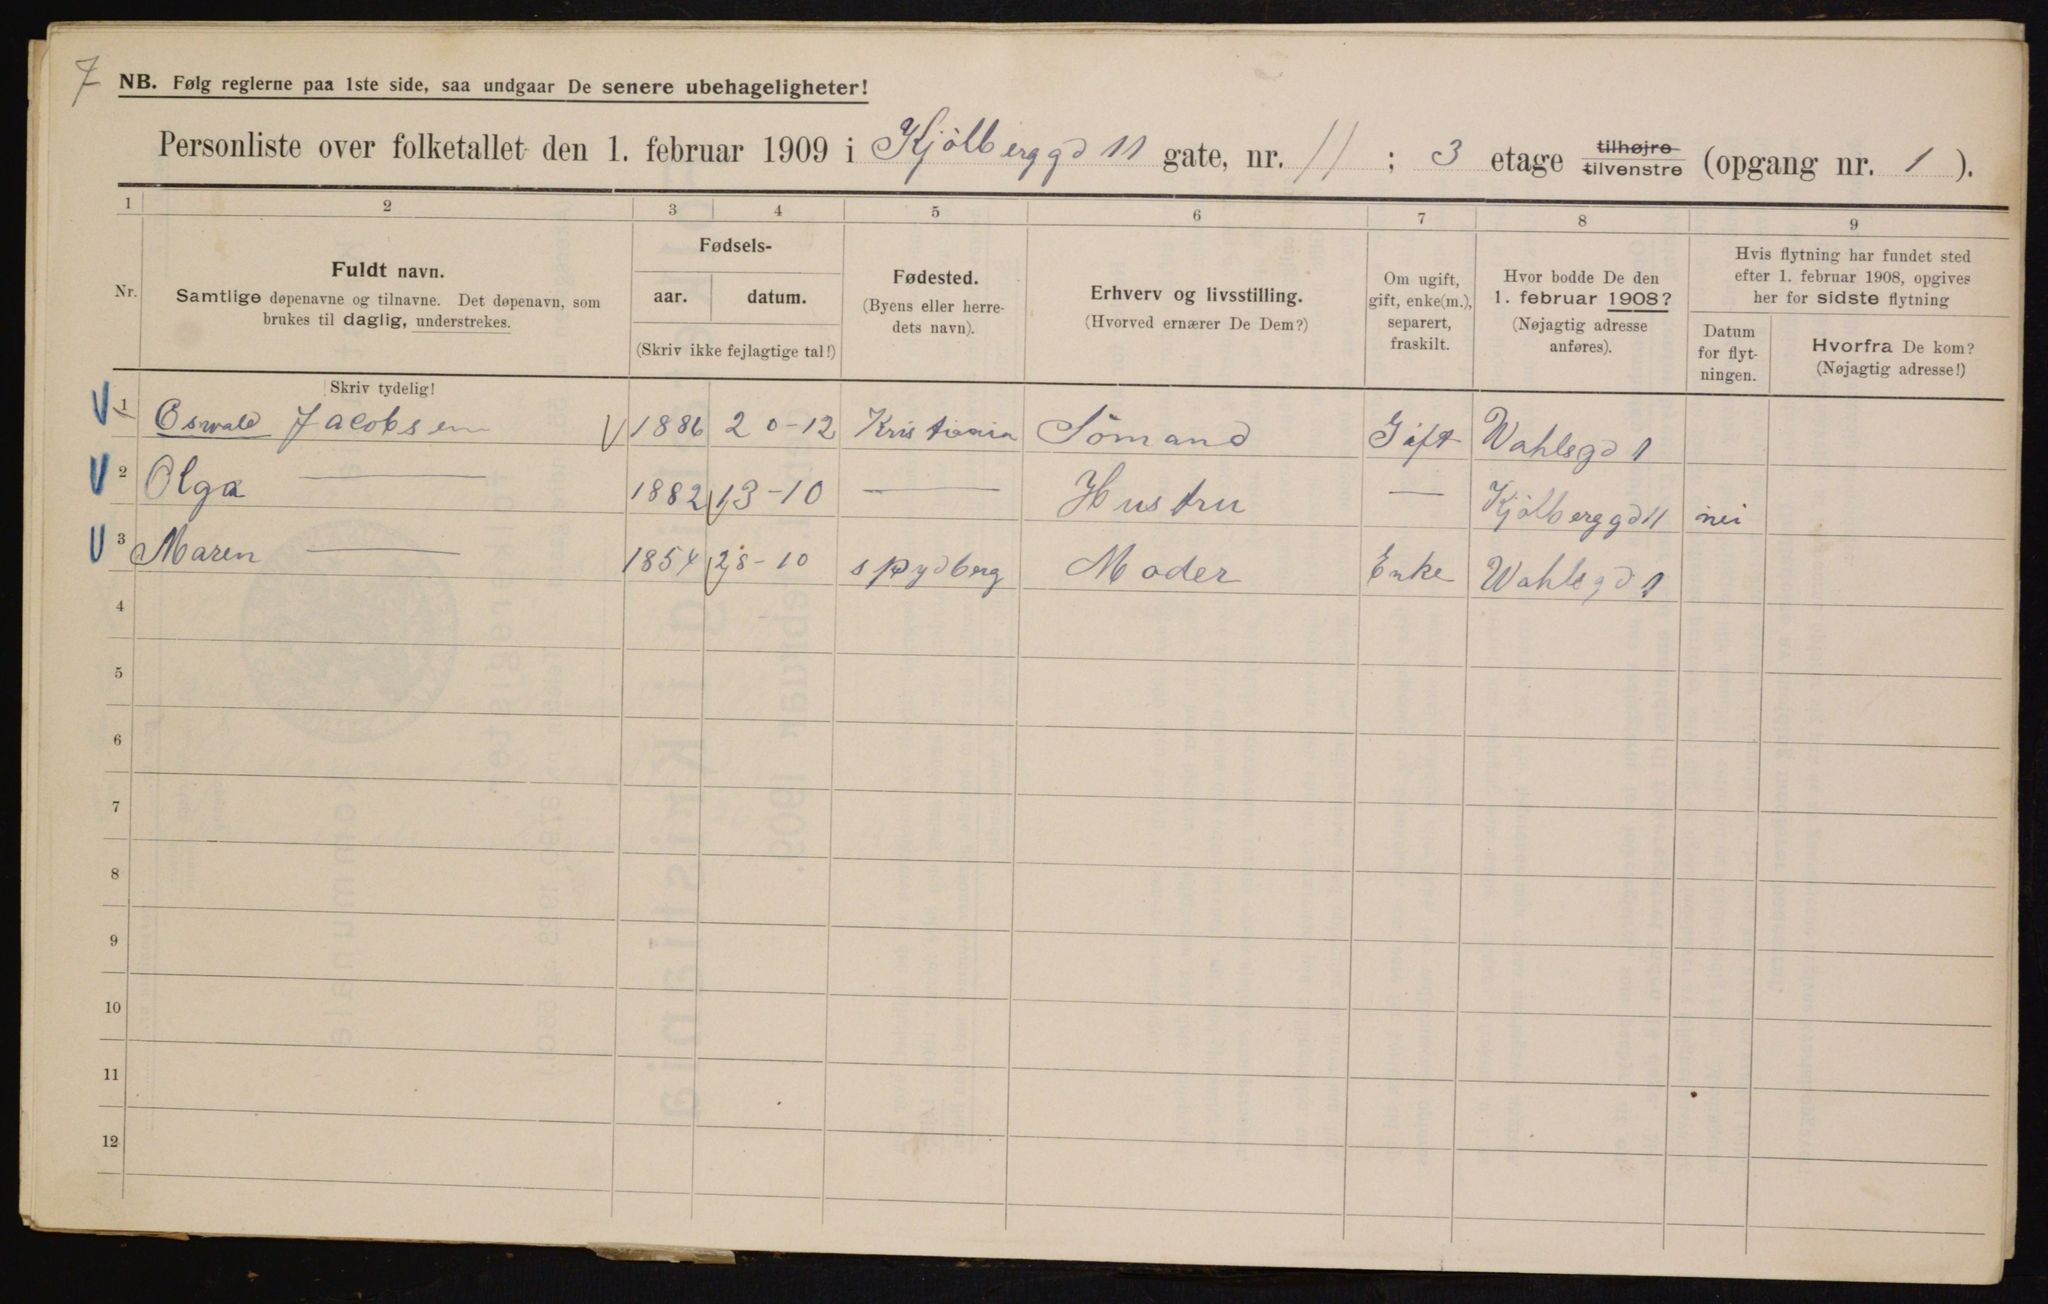 7
NB. Følg reglerne paa 1ste side, saa undgaar De senere ubehageligheter!
Personliste over folketallet den 1. februar 1909 i Kjölberggd 11 gate, nr. 11 ; 3 etage tilhøjre tilvenstre (opgang nr. 1 ).
1 2 3 4 5 6 7 8 9
Nr.
Fuldt navn.
Samtlige døpenavne og tilnavne. Det døpenavn, som
brukes til daglig, understrekes.
Skriv tydelig!
Fødsels-
aar. datum.
(Skriv ikke fejlagtige tal!)
Fødested.
(Byens eller herre-
dets navn).
Erhverv og livsstilling.
(Hvorved ernærer De Dem?)
Om ugift,
gift, enke(m.),
separert,
fraskilt.
Hvor bodde De den
1. februar 1908?
(Nøjagtig adresse
anføres).
Hvis flytning har fundet sted
efter 1. februar 1908, opgives
her for sidste flytning
Datum
for flyt-
ningen.
Hvorfra De kom?
(Nøjagtig adresse!)
1 Oswald Jacobsen 1886 20-12 Kristiania Sömand Gift Wahlsgd 1
2 Olga — 1882 13-10 — Hustru — Kjölberggd 11 nei
3 Maren — 1854 28-10 spydberg Moder Enke Wahlsgd 1
4
5
6
7
8
9
10
11
12